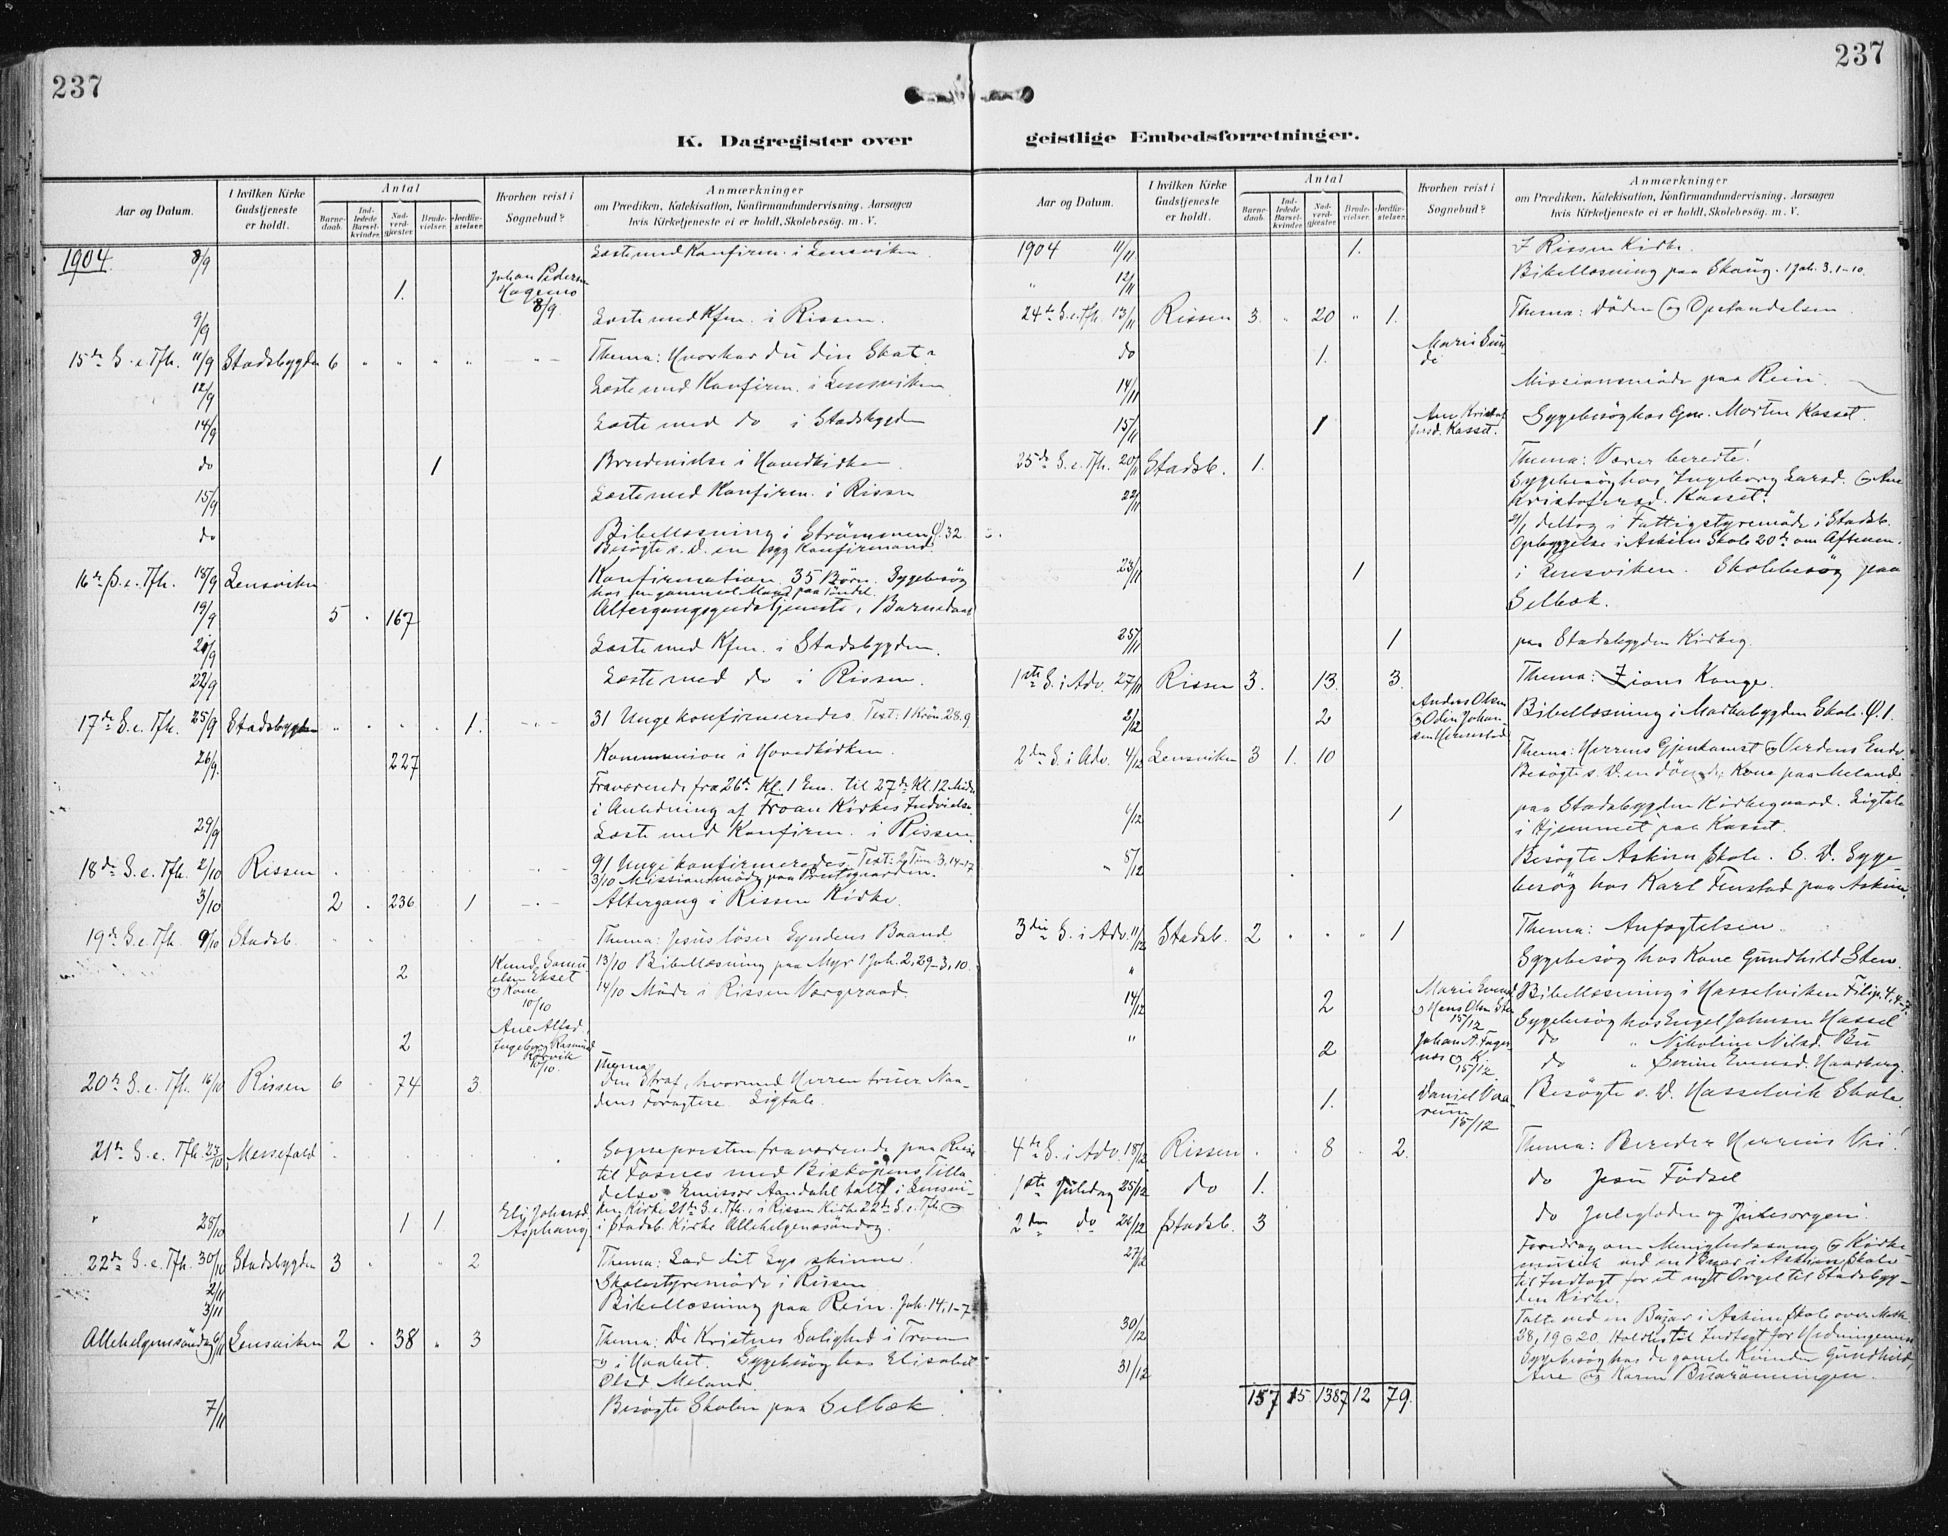 237
237
K. Dagregister over
geistlige Embedsforretninger.
Aar og Datum.
I hvilken Kirke Gudstjeneste er holdt.
Antal
Barne-daab.
Ind-ledede Barsel-kvinder.
Nad-verd-gjæster.
Brude-vielser.
Jordfæ-stelser.
Hvorhen reist i Sognebud?
Anmærkninger
om Prædiken, Katekisation, Konfirmandundervisning, Aarsagen
hvis Kirketjeneste ei er holdt, Skolebesøg. m. V.
1904 8/9 Læste med Konfirm. i Lensviken
1. Johan Pedersen
8/9.
9/9 Læste med Kfm. i Rissen.
15de S. e. Tfh. 11/9 Stadsbygden 6 " " " " Thema: Hvor har du din Skat?
12/9 Læste med Konfirm. i Lensviken
14/9 Læste med do i Stadsbygden
do 1 Brudevielse i Hovedkirken.
15/9 Læste med Konfirm. i Rissen
do Bibellæsning i Strømmen
Besøgte s. D. en syg Konfirmand.
16de S. e. Tfh. 18/9 Lensviken Konfirmation. 35 Børn. Sygebesøg
hos en gammel Mand paa
19/9 5 . 167 Altergangsgudstjeneste, Barnedaab
20/9 Læste med Kfm. i Stadsbygden.
22/9 Læste med do i Rissen.
17de S. e. Tfh. 25/9 Stadsbygden 1. 31 Unge konfirmeredes. Text: 1 Krøn. 28.9
26/9. 227 Kommunion i Hovedkirken.
Fraværende fra 26de Kl. 1 Em. til 27de Kl. 12 Midn
i Anledning af Froan Kirkes Indvielse.
29/9 Læste med Konfirm. i Rissen
18de S. e. Tfh. 2/10 Rissen Unge konfirmeredes. Text: 2 Tim. 3.14-17
3/10 Missionsmøde paa Prestegaarden.
3/10 2 . 236 1 Altergang i Rissen Kirke.
19de S. e. Tfh. 9/10 Stadsb. Thema: Jesus løser Syndens Baand
2 Knud Samu-
elsen Ekset 13/10 Bibellæsning paa Myr 1 Joh. 2,29-3,10.
og Kone 14/10 Møde i Rissen Værgeraad.
10/10
2 Ane Altsd.,
Ingeborg Rasmusd
10/10.
20de S. e. Tfh. 16/10 Rissen 6 . 74 3. Thema:
den Straf, hvormed Herren truer Naa-
dens Foragtere. Ligtale.
21de S. e. Tfh. 23/10 Messefald Sognepresten fraværende paa Reise
til Fosnes med Biskopens Tilla-
delse. Emissær Aandahl talte i Lensvi-
ken Kirke 21de S. e. Tfh., i Rissen Kirke 22de S. e. Tfh. og
" 25/10 1 1. Eli Johnsd.
Asphaug i Stadsb. Kirke Allehelgensøndag.
22de S. e. Tfh. 30/10 Stadsbygden 3 . " 2 Thema: Lad dit Lys skinne!
2/11 Skolestyremøde i Rissen
3/11 Bibellæsning paa Rein. Joh. 14,1-7
Allehelgensøndag 6/11 Lensviken 2 . 38 " 3 Thema: De Kristnes Salighed i Troen
og i Haabet. Sygebesøg hos Elisabet
Olsd. Meland.
7/11 Besøgte Skolen paa Selbæk.
Aar og Datum.
I hvilken Kirke Gudstjeneste er holdt.
Antal
Barne-daab.
Ind-ledede Barsel-kvinder.
Nad-verd-gjæster.
Brude-vielser.
Jordfæ-stelser.
Hvorhen reist i Sognebud?
Anmærkninger
om Prædiken, Katekisation, Konfirmandundervisning, Aarsagen
hvis Kirketjeneste ei er holdt, Skolebesøg. m. V.
1904 11/11 1. I Rissen Kirke.
" 12/11 Bibellæsning paa Skaug. 1 Joh. 3.1-10.
24de S. e. Tfh. 13/11 Rissen 3. " 20 " 1. Thema: Døden og Opstandelsen
do 1. Mari Sun-
de
14/11 Missionsmøde paa Rein.
15/11 1 Ane Kristof
fersd. Kasset. Sygebesøg hos Gm. Morten Kasset
25de S. e. Tfh. 20/11 Stadsb. 1. Thema: Værer beredte!
Sygebesøg hos Ingeborg Larsd. og Ane
22/11 Kristoffersd. Kasset.
deltog i Fattigstyremøde i Stadsb.
Opbyggelse i Askim Skole 20de om Aftenen.
23/11 1 i Lensviken. Skolebesøg paa
Selbæk.
25/11 1 paa Stadsbygden Kirkeg.
1ste S. i Adv. 27/11 Rissen 3. 13. 3. Thema: Zions Konge.
2/12 2 Anders Olsen
og Odin Johan-
sen Bibellæsning i Markabygden Skole.
2den S. i Adv. 4/12 Lensviken 3 1. 10 Thema: Herrens Gjenkomst og Verdens Ende
Besøgte s. D. en døende Kone paa Meland
6/12 1 paa Stadsbygden Kirkegaard. Ligtale
i Hjemmet paa Kasset.
" 5/12 Besøgte Askim Skole. S. D. Syge-
besøg hos Karl Fenstad paa Askim.
3die S. i Adv. 11/12 Stadsb. 2 1 Thema: Anfægtelsen.
" Sygebesøg hos Kone Gundhild Sten.
14/12 2 Marie Evensd
og Hans Olsen Sten
15/12 Bibellæsning i Hasselviken Filip. 4,4-7.
Sygebesøg hos Engel Johnsen Hassel
" 2 Johan A. Fager-
næs og K.
15/12 do " Nikoline Nilsd. Bu
do " Serine Evensd. Haarberg.
1. Daniel Vaa-
rum
15/12 Besøgte s. D. Hasselvik Skole.
4de S. i Adv. 18/12 Rissen 8 2. Thema: Bereder Herrens Vei!
1ste Juledag 25/12 do 1. do Jesu Fødsel
2den do 26/12 Stadsb. 3 do Juleglæden og Julesorgen.
27/12 Foredrag om Menighedssang og Kirke-
musik ved en Basar i Askim Skole
til Indtægt for et nyt Orgel til Stadsbyg-
den Kirke.
30/12 Talte ved en Basar i Askim Skole over Matth
28,19 og 20. Holdt til Indtægt for Hedningemiss.
31/12 Sygebesøg hos de gamle Kvinder Gundhild,
Ane og Karen Buarømningen.
157 15 1387 12 79.